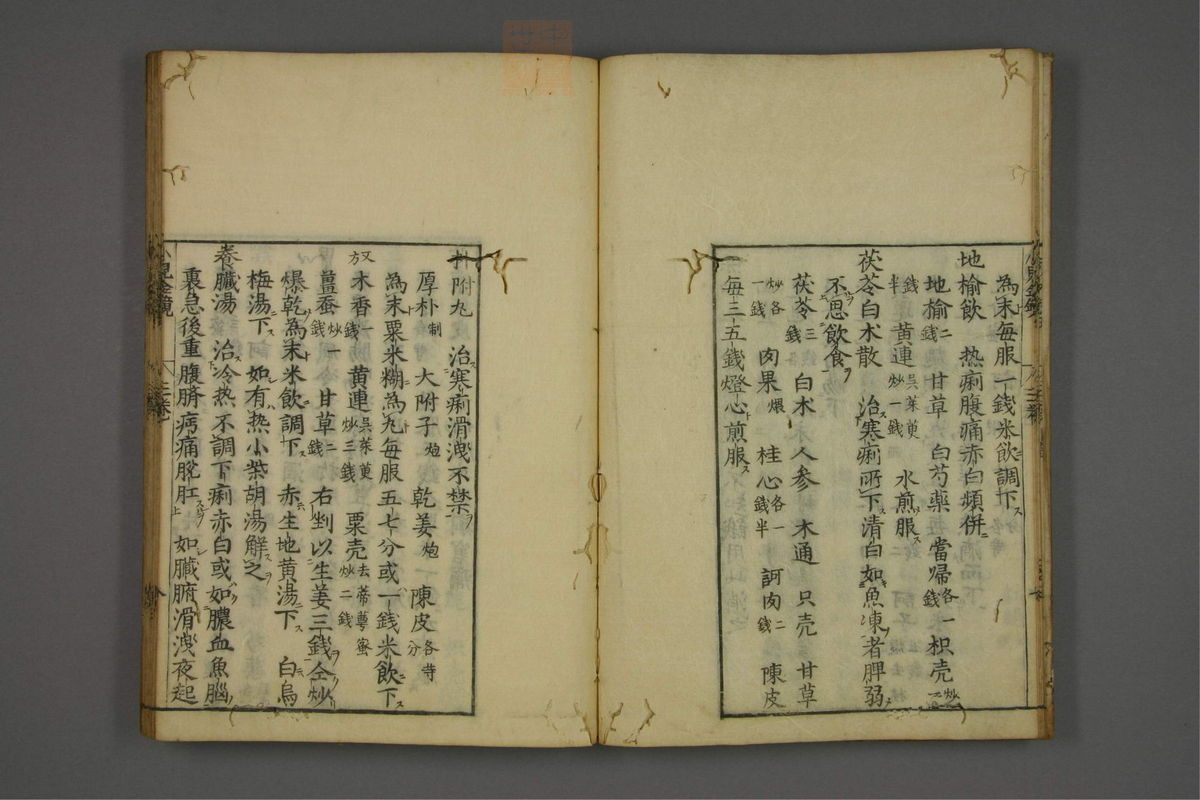 為末每服一錢米飲調下ス
地榆飲　热痢腹痛赤白頻併ニ
地榆二錢　甘草　白芍藥　當帰各一錢　枳壳炒二
錢半　黄連吳茱萸炒一錢　水煎服ス
茯苓白术散　治寒痢所下清白如魚凍者脾弱
不思飲食ヲ
茯苓三錢　白术　人参　木通　只壳　甘草
炒各一錢　肉果煨　桂心各一錢半　訶肉二錢　陳皮
每三五錢燈心煎服ス
附丸　治寒痢滑洩不禁ヲ
厚朴制　大附子炮　乾姜炮　陳皮各等分
為末粟米糊為丸每服五七分或一錢米飲下ス
又方　木香一錢　黄連吳茱萸炒三錢　粟壳去蒂萼蜜炒二錢
薑蚕炒一錢　甘草二錢　右剉以生姜三錢仝炒
爆乾為末米飲調下ス　赤生地黄湯下ス　白烏
梅湯下ス　如有热小柴胡湯解之
養臟湯　治冷热不調下痢赤白或如膿血魚腦
裏急後重腹臍㽲痛脫肛　如臟腑滑洩夜起
小兒金鏡
三卷